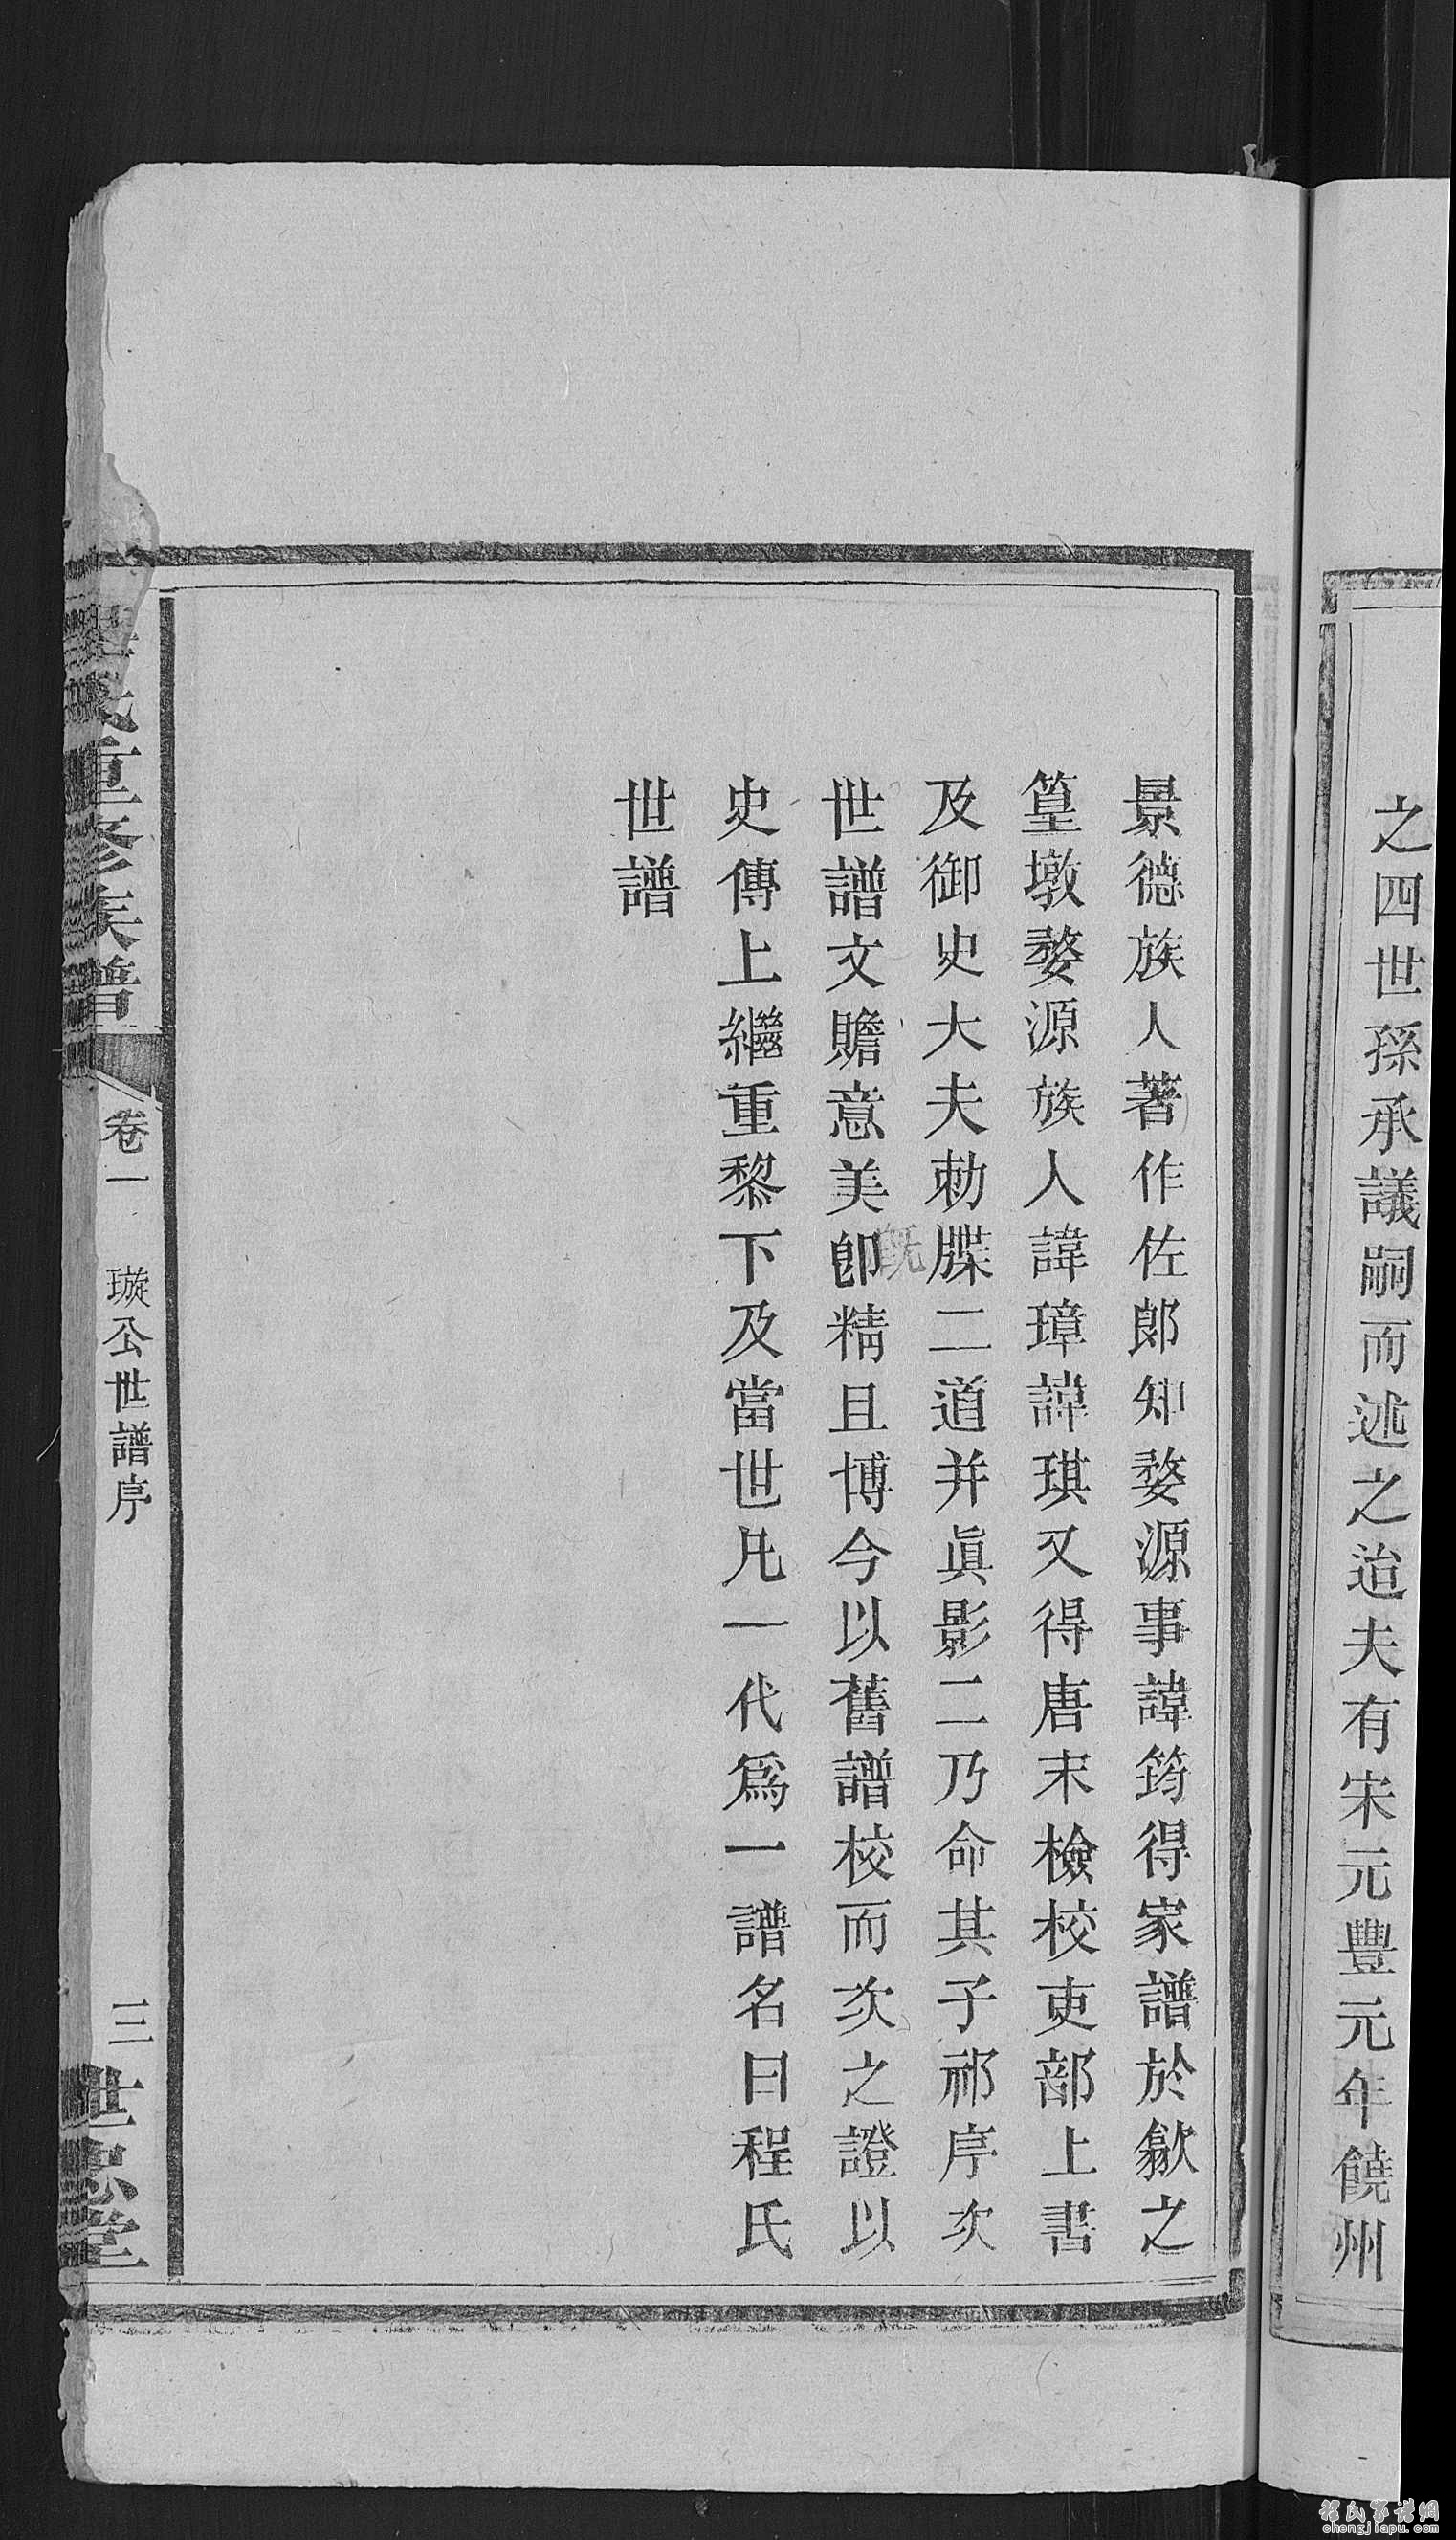 之四世孫承議嗣而述之迨夫有宋元豐元年饒州
景德族人著作佐郎知婺源事諱筠得家譜於歙之
篁墩婺源族人諱璋諱琪又得唐末檢校吏部上書
及御史大夫勅牒二道并眞影二乃命其子祁序次
世譜文贍意美卽精且博今以舊譜校而次之證以
旣
史傳上繼重黎下及當世凡一代爲一譜名曰程氏
世譜
氏重修族譜
卷一
璇公世譜序
三
世忠堂
程氏家譜網
chengjiapu.com